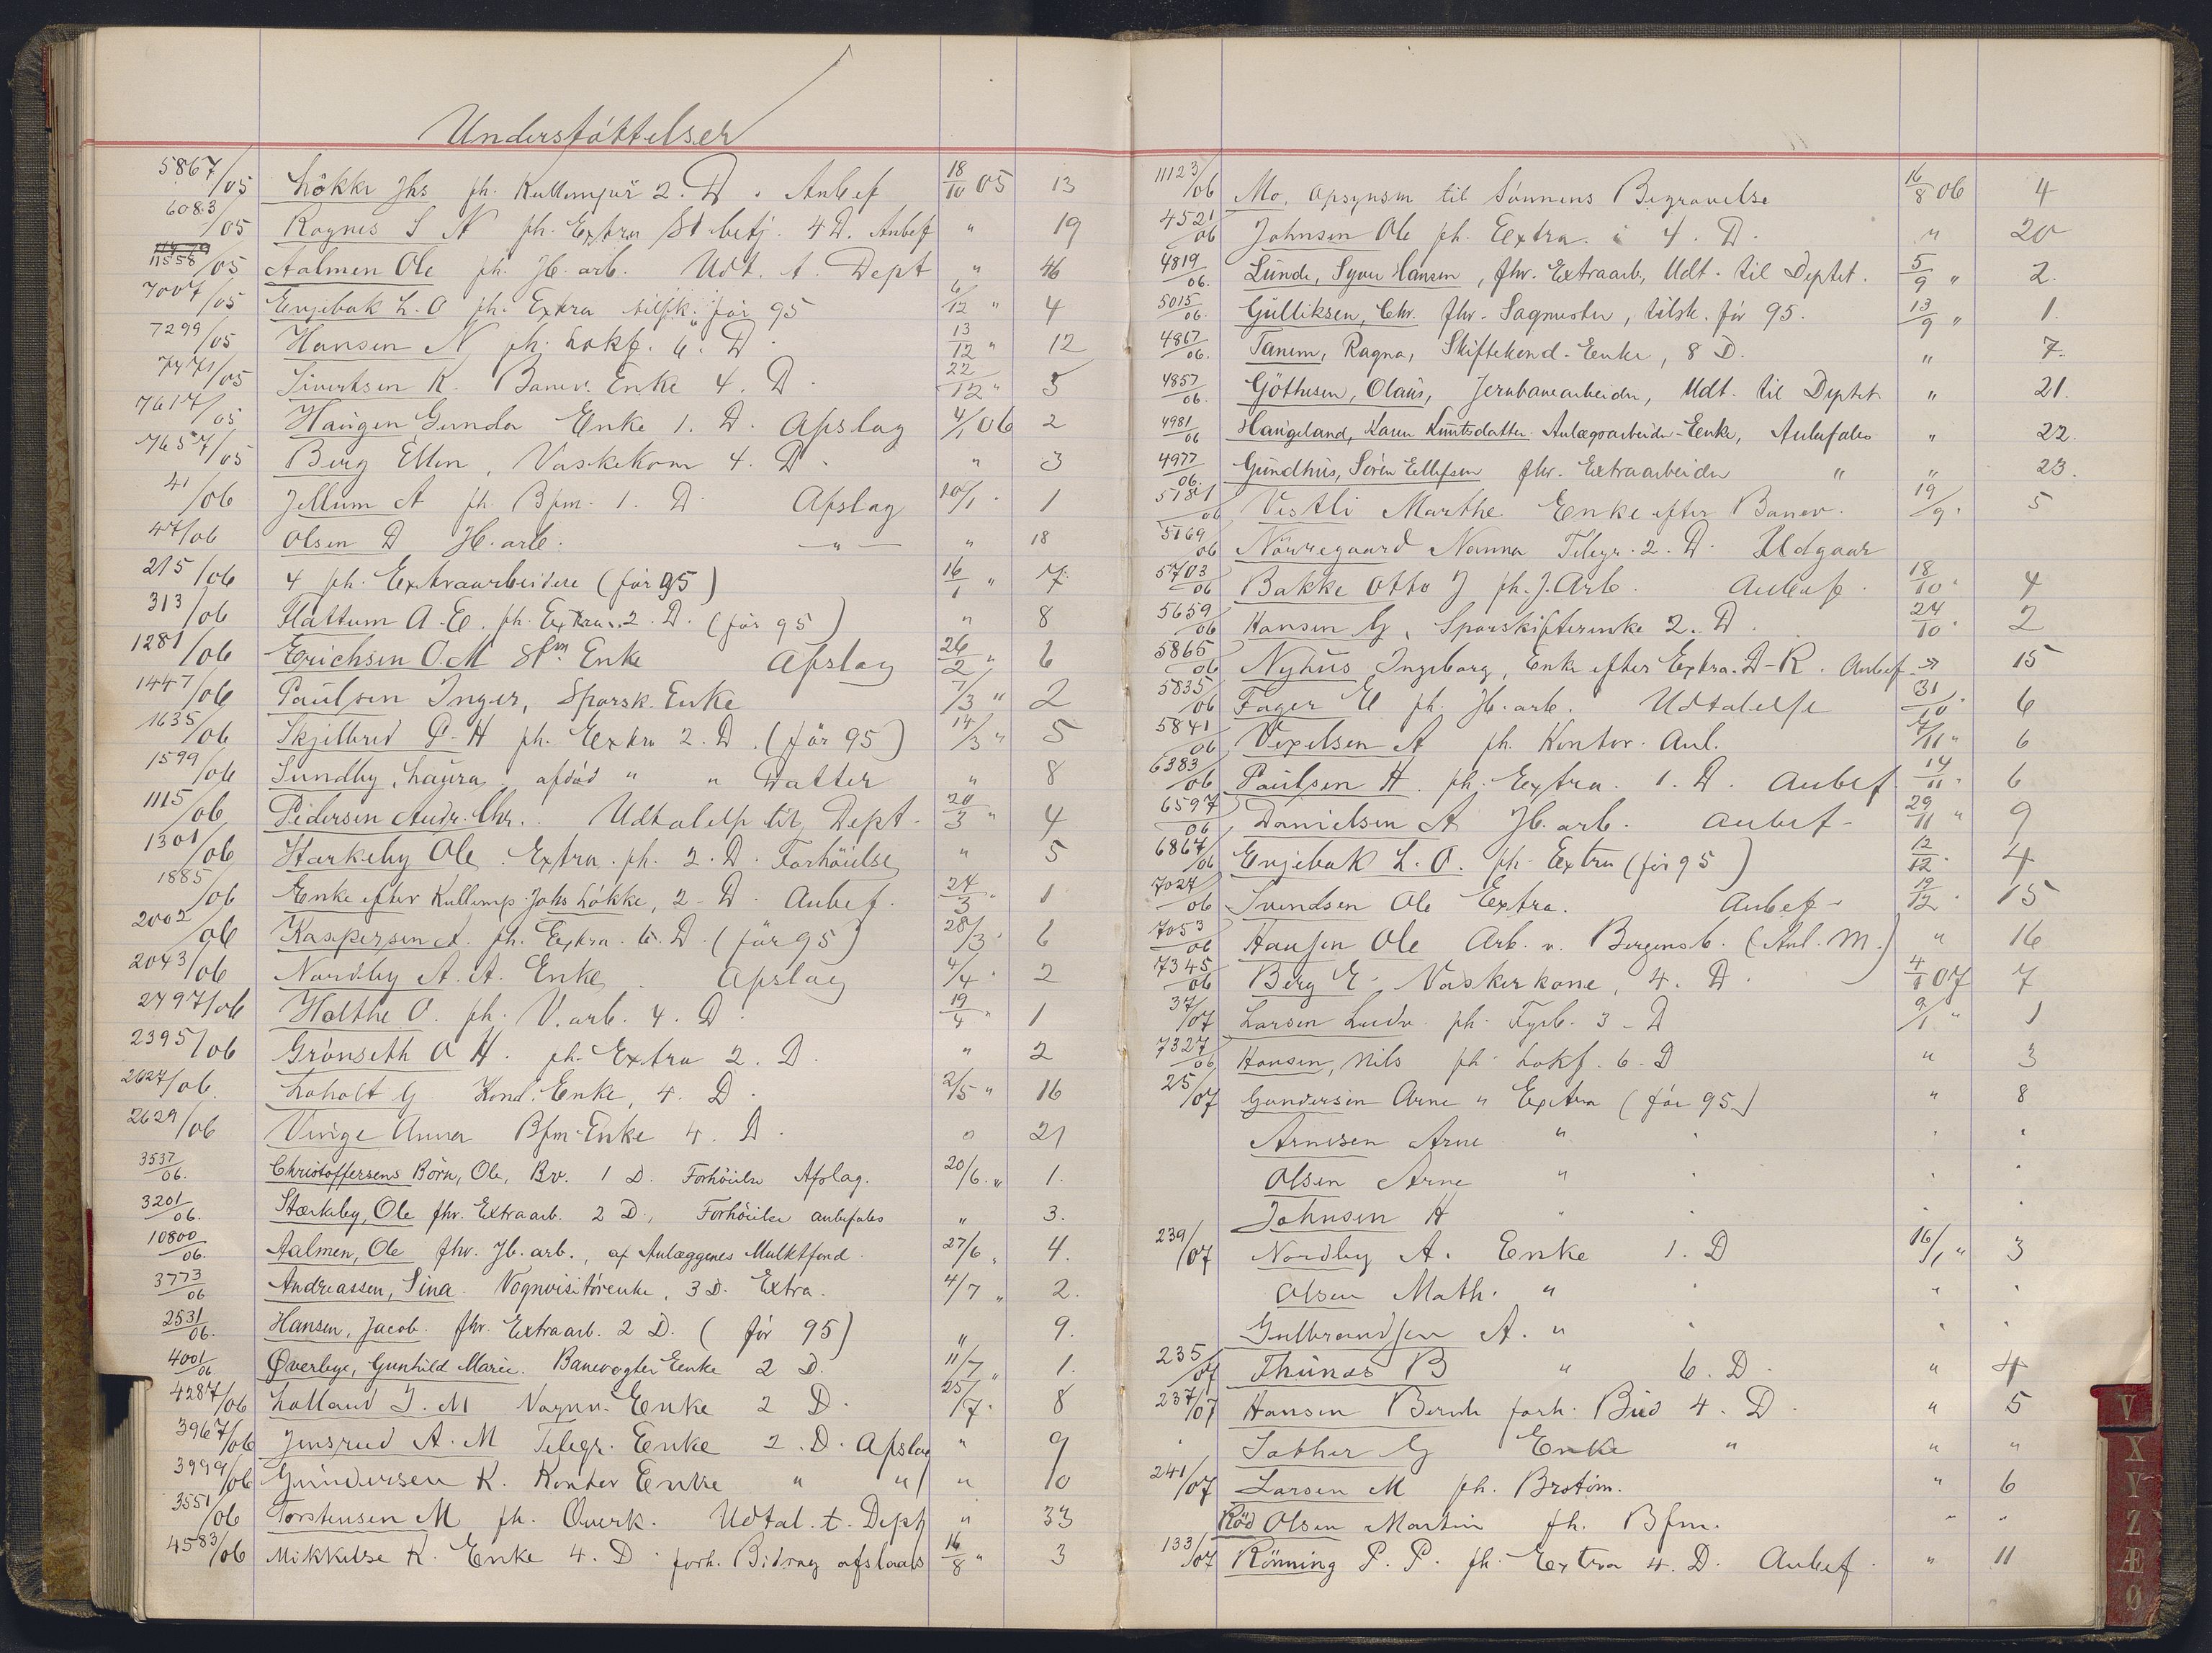 Understøttelser
5867/05 Løkke Jhs fh. Kullempür 2. D. Anbef 18/10 05 13
6083/05 Rognes S N fh. Extra St betj. 4 D. Anbef " 19
11558/05 Aalmen Ole fh. Jb. arb. Udt. t. Dept " 46
7007/05 Engebak L. O fh. Extra tilsk. før 95 6/12 " 4
7299/05 Hansen N fh. Lokf. 6. D. 13/12 " 12
7471/05 Sivertsen K. Banev. Enke 4. D. 22/12 " 5
7617/05 Haugen Gunda Enke 1. D. Afslag 4/1 06 2
7657/05 Berg Ellen, Vaskekom 4. D. " 3
41/06 Jellum A fh. Bfm. 1. D. Afslag 10/1 " 1
47/06 Olsen D Jb. arb. — " — " 18
215/06 4 fh. Extraarbeidere (før 95) 16/1 " 7
313/06 Flattum A. E. fh. Extra. 2. D. (før 95) " 8
1281/06 Erichsen O. M Stm Enke Afslag 26/2 " 6
1447/06 Paulsen Inger, Sporsk. Enke 7/3 " 2
1635/06 Skjelbred P. H fh. Extra 2. D. (før 95) 14/3 " 5
1599/06 Sundby, Laura, afdød " " Datter " 8
1115/06 Pedersen Andr. Chr. Udtalelse til Dept. 20/3 " 4
1301/06 Stærkeby Ole Extra. fh. 2. D. Forhöielse " 5
1885/06 Enke efter Kullemp. Johs Løkke, 2. D. Anbef. 24/3 " 1
2002/06 Kaspersen A. fh. Extra. 6. D. (før 95) 28/3 " 6
2043/06 Nordby A. A. Enke Afslag 4/4 " 2
2497/06 Holthe O. fh. V. arb. 4. D. 19/4 " 1
2395/06 Grönseth O H. fh. Extra 2. D. " 2
2627/06. Loholt G Kond. Enke, 4. D. 2/5 " 16
2629/06 Vinge Anna Bfm. Enke 4. D. " 21
3537/06. Christoffersens Börn, Ole, Bv. 1 D. Forhöielse Afslag. 20/6. " 1.
3201/06. Stærkeby, Ole fhv. Extraarb. 2 D., Forhöielse anbefales " 3.
10800/06. Aalmen, Ole fhv. Jb. arb., af Anlæggenes Mulktfond 27/6 " 4.
3773/06 Andreassen, Sina. Vognvisitörenke, 3 D. Extra. 4/7 " 2.
2531/06. Hansen, Jacob. fhv. Extraarb. 2 D. (før 95) " 9.
4001/06 Øverbye, Gunhild Marie. Banevogter Eenke 2 D. 11/7 " 1.
4287/06 Lolland J. M Vognv. Enke 2 D. 25/7 " 8
3967/06 Jensrud A. M Telegr. Eenke 2. D. Afslag " 9
3999/06 Gundersen K. Kontor Enke " " " 10
3551/06 Torstensen M fh. Qverk. Udtal. t. Dept " 33
4583/06 Mikkelse K. Enke 4. D. forh. Bidrag afslaaes 16/8 " 3
11123/06 Mo, opsynsm til Sønnens Begravelse 16/8 06 4
4521/06 Johnsen Ole fh. Extra. i 4. D. " 20
4819/06. Lunde, Syver Hansen, fhv. Extraarb., Udt. til Deptet. 5/9 " 2.
5015/06. Gulliksen, Chr. fhv. Sagmester, tilsk. før 95. 13/9 " 1.
4867/06. Tanem, Ragna, Skiftekond. Eenke, 8 D. " 7.
4857/06. Göthesen, Olaus, Jernbanearbeider, Udt. til Deptet " 21.
4981/06 Haugeland, Karen Knutsdatter. Anlægsarbeider-Eenke, Anbefales " 22.
4977/06. Gundhus, Sören Ellefsen fhv. Extraarbeider " " 23.
5181/06 Vestli Marthe Enke efter Banev. 19/9 " 5
5169/06 Nörregaard Nanna Telegr. 2. D. Udgaar
5703/06 Bakke Otto J fh. J. Arb. Anbef. 18/10 " 4
5659/06 Hansen G, Sporskifterenke 2. D. 24/10 " 2
5865/06 Nyhus Ingeborg, Enke efter Extra. D-R. Anbef " 15
5835/06 Fager E fh. Jb. arb. Udtalelse 31/10 " 6
5841/06 Vexelsen A fh. Kontor. Anl. 7/11 " 6
6383/06 Paulsen H. fh. Extra. 1. D. Anbef. 14/11 " 6
6597/06 Danielsen A Jb. arb. Anbef. 29/11 " 9
6867/06 Engebak L. O. fh. Extra (før 95) 12/12 " 4
7027/06 Svendsen Ole Extra. Anbef. 19/12 " 15
7053/06 Hansen Ole Arb. v. Bergensb. (Anl. M.) " 16
7345/06 Berg E. Vaskerkone, 4. D. 4/1 07 7
37/07 Larsen Ludv. fh. Fyrb. 3. D 9/1 " 1
7327/06 Hansen, Nils fh. Lokf. 6. D " 3
25/07 Gundersen Arne " Extra (før 95) " 8
Arnesen Arne " " " "
Olsen Arne " " " "
Johnsen H " " " "
239/07 Nordby A. Enke 1. D 16/1 " 3
Olsen Math. " " " "
Gulbrandsen A. " " " "
235/07 Thunæs B " 6. D. " 4
237/07 Hansen Bernh forh. Bud 4. D. " 5
" Sather G Enke " " "
241/07 Larsen M fh. Brstom. " 6
Röd Olsen Martin fh. Bfm. " "
133/07 Rönning P. P. fh. Extra 4. D. Anbef. " 11
V
X
Y
Z
Æ
Ø